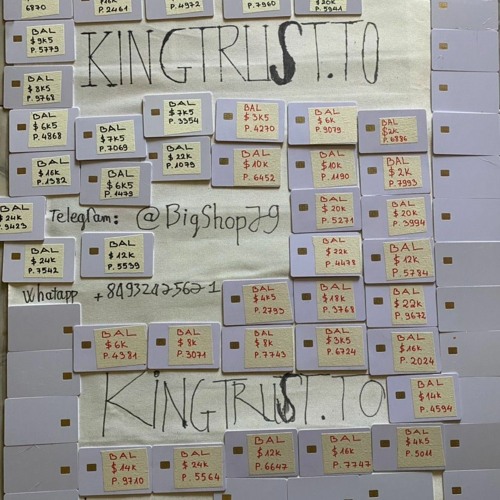 6870
$16K
P. 2461
P. 4972
P. 7960
$20K
P. 5941
BAL
$9K5
P. 5779
KINGTRUST.TO
BAL
$8K5
P. 9768
BAL
$6K5
P. 4868
BAL
$7K5
P. 7069
BAL
$7K5
P. 3354
BAL
$3K5
P. 4270
BAL
$6K
P. 9079
BAL
$2K
P. 6886
BAL
$16K
P. 1982
BAL
$6K5
P. 1479
BAL
$22K
P. 1079
BAL
$10K
P. 6452
BAL
$10K
P. 1190
BAL
$2K
P. 7993
BAL
$24K
P. 9423
Telegram: @BigShopJ9
BAL
$20K
P. 5271
BAL
$20K
P. 3994
BAL
$24K
P. 7542
BAL
$12K
P. 5539
BAL
$22K
P. 4478
BAL
$12K
P. 5784
Whatapp +84932425621
BAL
$4K5
P. 2793
BAL
$18K
P. 3768
BAL
$22K
P. 9672
BAL
$6K
P. 4381
BAL
$8K
P. 3071
BAL
$8K
P. 7743
BAL
$3K5
P. 6724
BAL
$16K
P. 2024
KINGTRUST.TO
BAL
$14K
P. 4594
BAL
$14K
P. 9710
BAL
$24K
P. 5564
BAL
$12K
P. 6647
BAL
$16K
P. 7747
BAL
$4K5
P. 5011